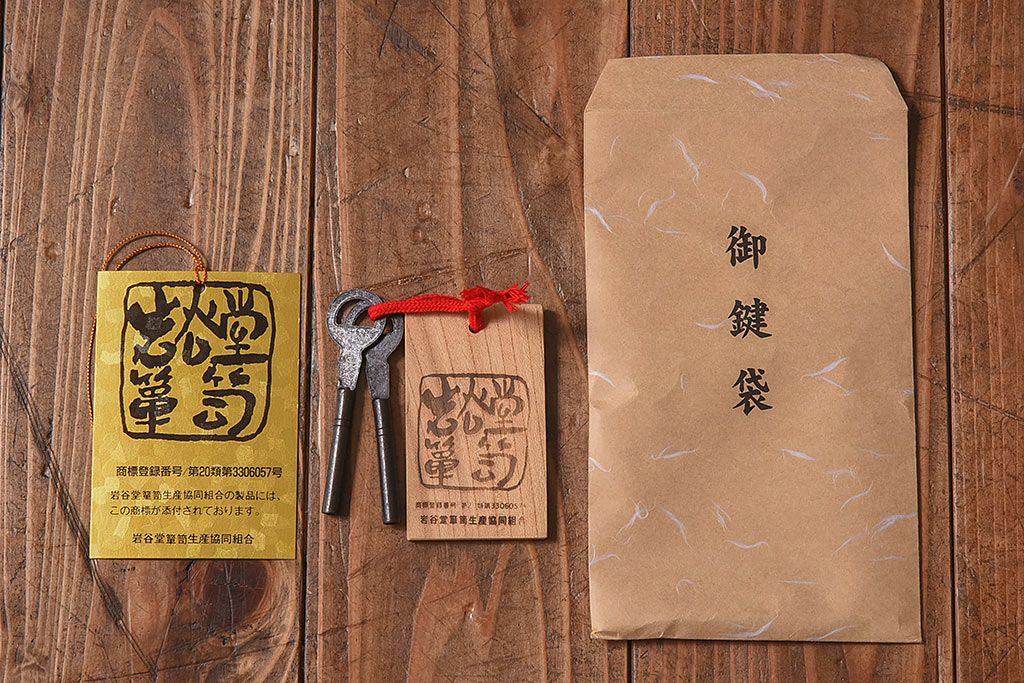 岩谷堂
簞笥
商標登録番号/第20類第3306057号
岩谷堂簞笥生産協同組合の製品には、
この商標が添付されております。
岩谷堂簞笥生産協同組合
岩谷堂
簞笥
商標登録番号
岩谷堂簞笥生産協同組合
御鍵袋